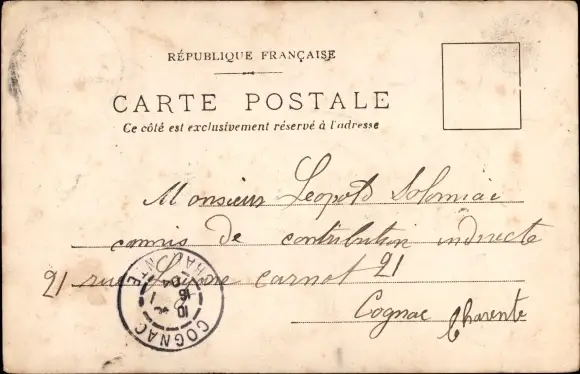 RÉPUBLIQUE FRANÇAISE
CARTE POSTALE
Ce côté est exclusivement réservé à l'adresse
Monsieur Leopold Solomiac
commis de contribution indirecte
21 rue carnot 21
Cognac Charente
COGNAC
10
16
04